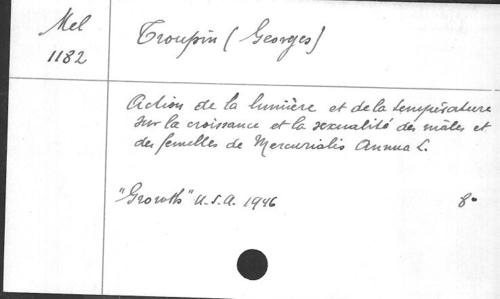 Mel
1182
Troupin (Georges)
Action de la lumière et de la température
sur la croissance et la sexualité des mâles et
des femelles de Mercurialis Annua L.
"Growth" U.S.A. 1946 8°